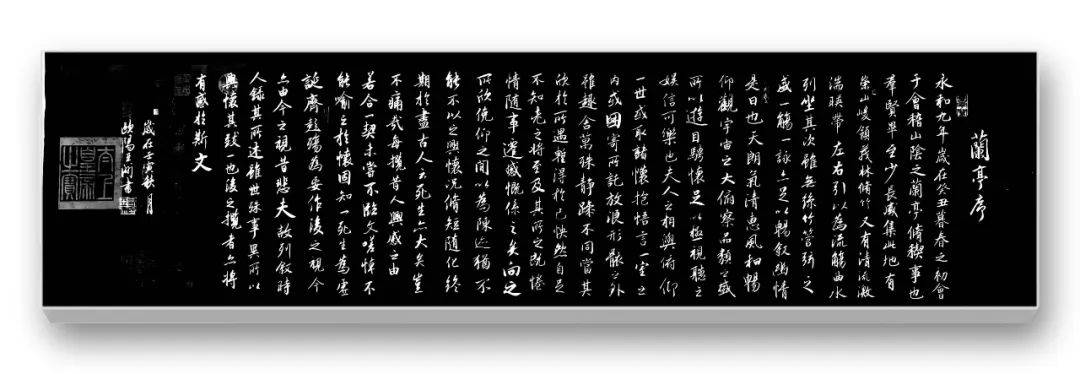 蘭亭序
永和九年歲在癸丑暮春之初會
于會稽山陰之蘭亭脩稧事也
羣賢畢至少長咸集此地有
崇山峻領茂林脩竹又有清流激
湍暎帶左右引以為流觴曲水
列坐其次雖無絲竹管弦之
盛一觴一詠亦足以暢敘幽情
是日也天朗氣清惠風和暢
仰觀宇宙之大俯察品類之盛
所以遊目騁懷足以極視聽之
娛信可樂也夫人之相與俯仰
一世或取諸懷抱悟言一室之
內或因寄所託放浪形骸之外
雖趣舍萬殊靜躁不同當其
欣於所遇暫得於己怏然自足
不知老之將至及其所之既惓
情隨事遷感慨係之矣向之
所欣俛仰之間以為陳迹猶不
能不以之興懷況脩短隨化終
期於盡古人云死生亦大矣豈
不痛哉每攬昔人興感之由
若合一契未嘗不臨文嗟悼不
能喻之於懷固知一死生為虛
誕齊彭殤為妄作後之視今
亦由今之視昔悲夫故列敘時
人錄其所述雖世殊事異所以
興懷其致一也後之攬者亦將
有感於斯文
歲在壬寅秋月
太上皇帝之寶